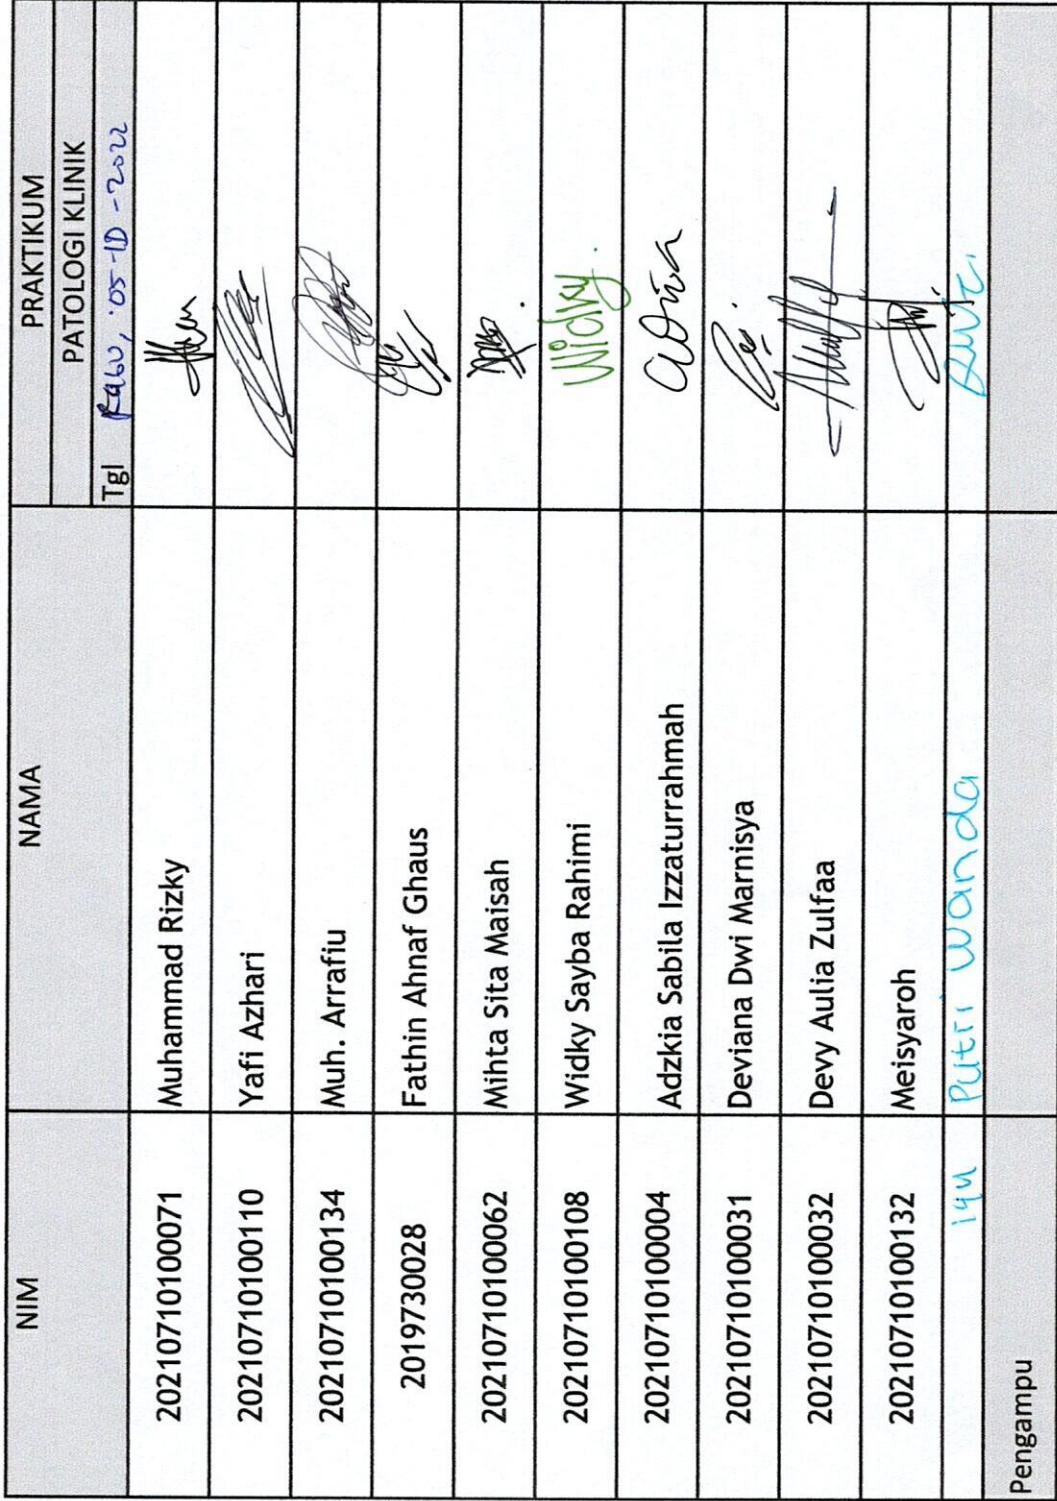 NIM NAMA PRAKTIKUM
PATOLOGI KLINIK
Tgl Rabu, 05-10-2022
20210710100071 Muhammad Rizky
20210710100110 Yafi Azhari
20210710100134 Muh. Arrafiu
2019730028 Fathin Ahnaf Ghaus
20210710100062 Mihta Sita Maisah
20210710100108 Widky Sayba Rahimi Widky.
20210710100004 Adzkia Sabila Izzaturrahmah
20210710100031 Deviana Dwi Marnisya
20210710100032 Devy Aulia Zulfaa
20210710100132 Meisyaroh
144 Putri Wanda
Pengampu